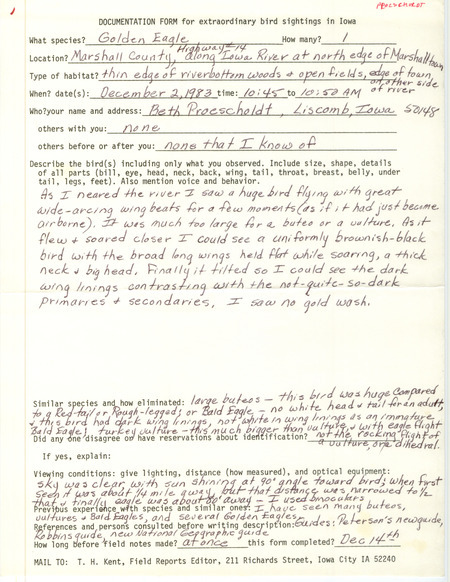 PROESCHOLDT
1
DOCUMENTATION FORM for extraordinary bird sightings in Iowa
What species? Golden Eagle How many? 1
Highway #14
Location? Marshall County, along Iowa River at north edge of Marshalltown
Type of habitat? thin edge of riverbottom woods & open fields, edge of town, on other side of river
When? date(s): December 2, 1983 time: 10:45 to 10:50 AM
Who? your name and address: Beth Proescholdt, Liscomb, Iowa 50148
others with you: none
others before or after you: none that I know of
Describe the bird(s) including only what you observed. Include size, shape, details
of all parts (bill, eye, head, neck, back, wing, tail, throat, breast, belly, under
tail, legs, feet). Also mention voice and behavior.
As I neared the river I saw a huge bird flying with great
wide-arcing wing beats for a few moments (as if it had just become
airborne). It was much too large for a buteo or a vulture. As it
flew & soared closer I could see a uniformly brownish-black
bird with the broad long wings held flat while soaring, a thick
neck & big head. Finally it tilted so I could see the dark
wing linings contrasting with the not-quite-so-dark
primaries & secondaries. I saw no gold wash.
Similar species and how eliminated: large buteos — this bird was huge compared
to a Red-tail or Rough-legged; or Bald Eagle — no white head & tail for an adult,
& this bird had dark wing linings, not white in wing linings as an immature
Bald Eagle; turkey vulture — this much bigger than vulture & with eagle flight
Did any one disagree or have reservations about identification? not the rocking flight of
a vulture or a dihedral.
If yes, explain:
Viewing conditions: give lighting, distance (how measured), and optical equipment:
sky was clear with sun shining at 90° angle toward bird; when first
seen it was about 1/4 mile away, but that distance was narrowed to 1/2
that & finally eagle was about 80' away — I used binoculars
Previous experience with species and similar ones: I have seen many buteos,
vultures & Bald Eagles, and several Golden Eagles.
References and persons consulted before writing description: Guides: Peterson's new guide,
Robbins guide, new National Geographic guide
How long before field notes made? at once this form completed? Dec 14th
MAIL TO: T. H. Kent, Field Reports Editor, 211 Richards Street, Iowa City IA 52240